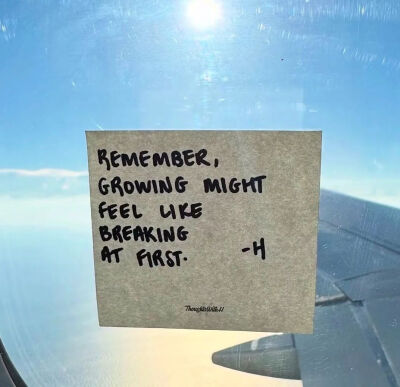 REMEMBER,
GROWING MIGHT
FEEL LIKE
BREAKING
AT FIRST. -H
ThoughtsWithH